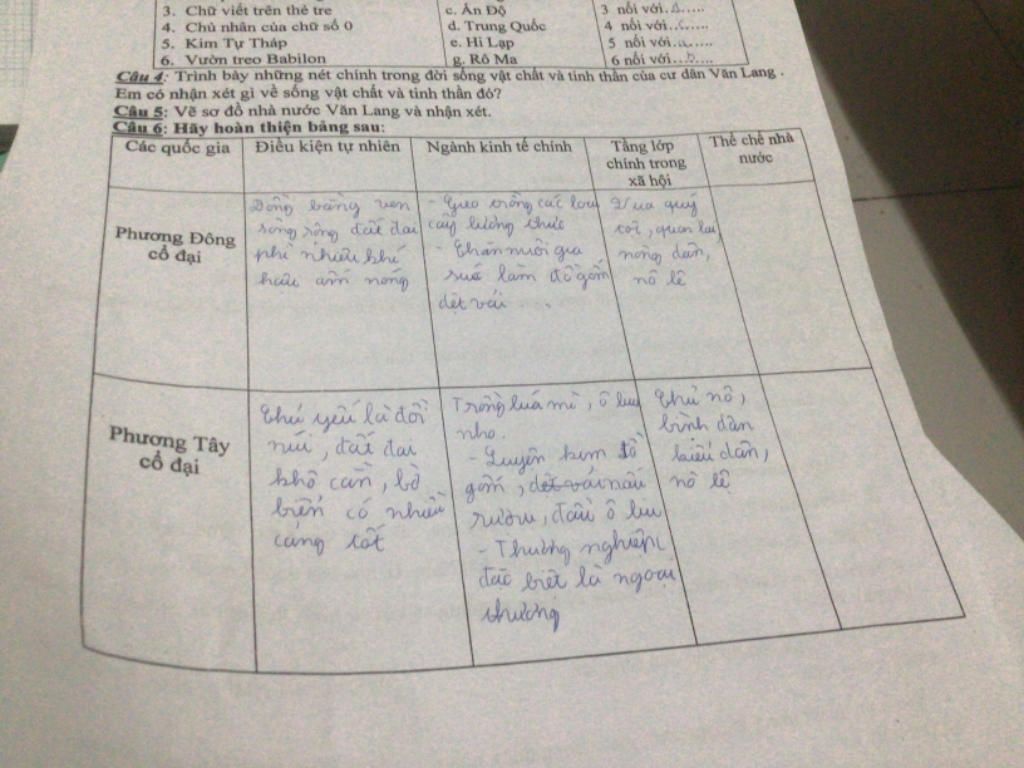 3. Chữ viết trên thẻ tre c. Ấn Độ 3 nối với
4. Chủ nhân của chữ số 0 d. Trung Quốc 4 nối với
5. Kim Tự Tháp e. Hi Lạp 5 nối với
6. Vườn treo Babilon g. Rô Ma 6 nối với
Câu 4: Trình bày những nét chính trong đời sống vật chất và tinh thần của cư dân Văn Lang .
Em có nhận xét gì về sống vật chất và tinh thần đó?
Câu 5: Vẽ sơ đồ nhà nước Văn Lang và nhận xét.
Câu 6: Hãy hoàn thiện bảng sau:
Các quốc gia
Điều kiện tự nhiên
Ngành kinh tế chính
Tầng lớp
chính trong
xã hội
Thể chế nhà
nước
Phương Đông
cổ đại
Đồng bằng ven
sông rộng đất đai
phì nhiêu khí
hậu ấm nóng
- Gieo trồng các loại
cây lương thực
- Chăn nuôi gia
súc làm đồ gốm
dệt vải ...
Vua quý
tộc, quan lại
nông dân,
nô lệ
Phương Tây
cổ đại
Chủ yếu là đồi
núi, đất đai
khô cằn, bờ
biển có nhiều
cảng tốt
Trồng luá mì, ô liu
nho.
- Luyện kim đồ
gốm, dệt vải nấu
rượu, dầu ô liu
- Thương nghiệp
đặc biệt là ngoại
thương
Chủ nô,
bình dân
kiều dân,
nô lệ